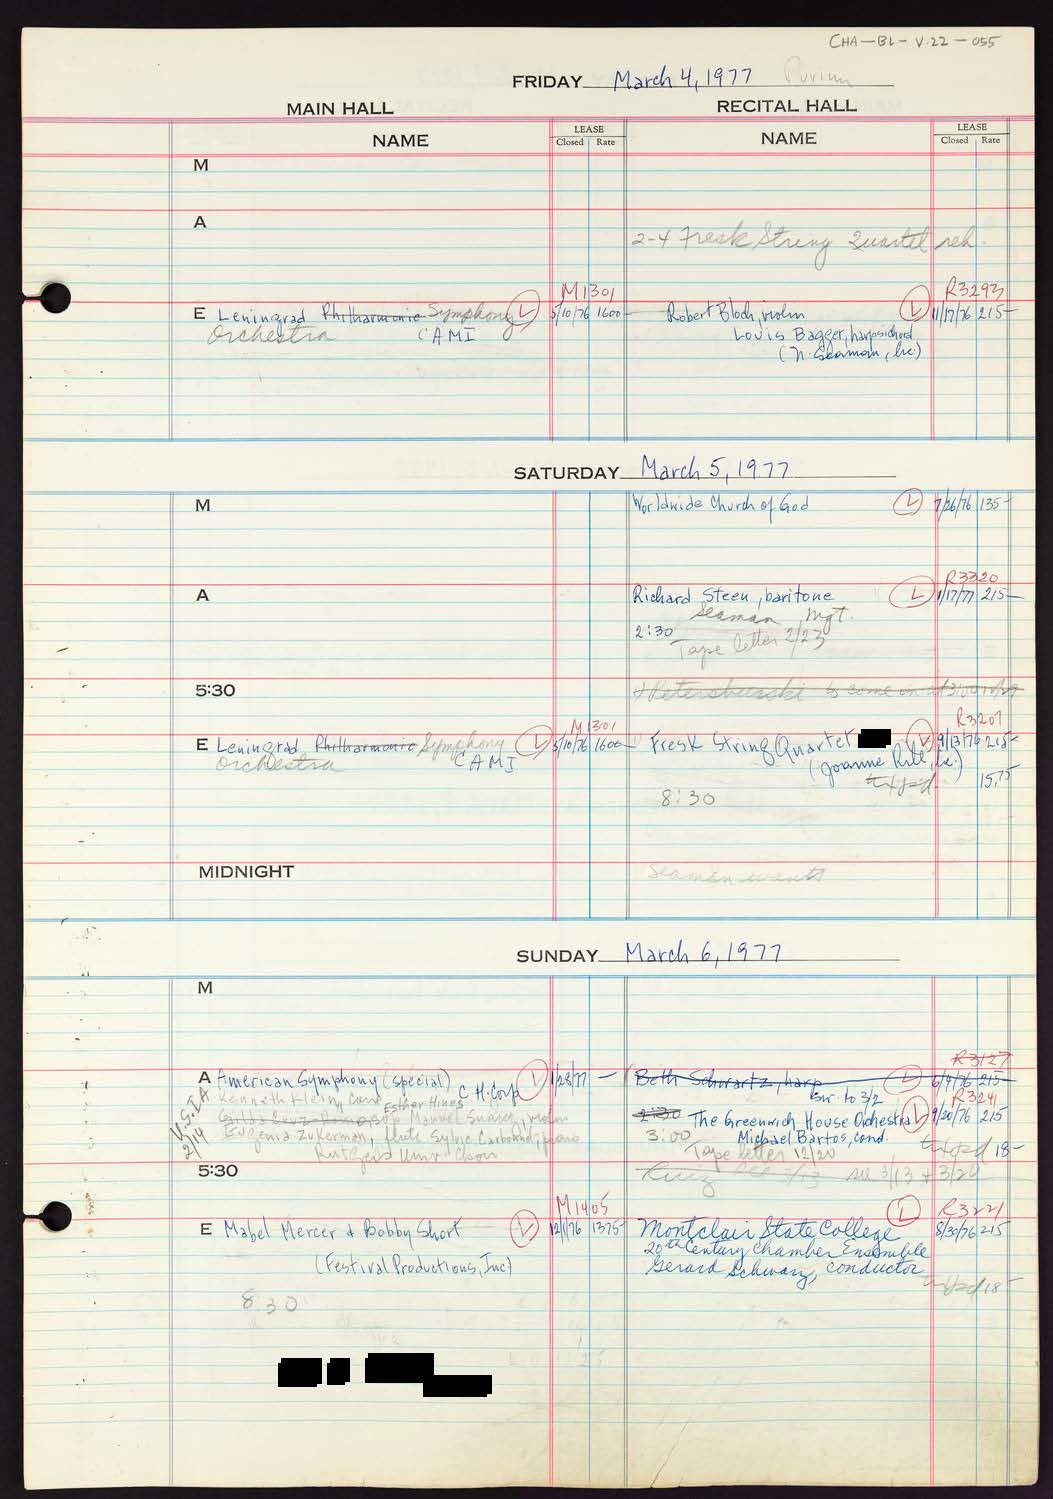 CHA-BL-V.22-055
FRIDAY March 4, 1977 Purim
MAIN HALL RECITAL HALL
NAME LEASE Closed Rate NAME LEASE Closed Rate
M
A
2-4 Fresk String Quartet reh.
M1301 R3293
E Leningrad Philharmonic Symphony L 5/10/76 1600- Robert Bloch, violin L 11/17/76 215-
Orchestra CAMI Louis Bagger, harpsichord
(N. Seaman, Inc.)
SATURDAY March 5, 1977
M Worldwide Church of God L 7/26/76 135-
R3320
A Richard Steen, baritone L 1/17/77 215-
Seaman Mgt.
2:30 Tape letter 2/23
5:30 Petersburski to come in at 3:00
M1301 R3207
E Leningrad Philharmonic Symphony L 5/10/76 1600- Fresk String Quartet L 9/13/76 215-
Orchestra CAMI (Joanne Rile, Inc.)
15.75
8:30
MIDNIGHT Seaman wants
SUNDAY March 6, 1977
M
R3127
A American Symphony (special) C.H. Corp L 1/28/77 - Beth Schwartz, harp L 6/4/76 215-
Kenneth Klein, Cond. Esther Hines sw. to 3/2 R3241
V.S.I.A. 2/14 Manuel Suarez, violin 2:30 The Greenwich House Orchestra L 9/20/76 215
Eugenia Zukerman, flute Sylvie Carbonel, piano 3:00 Michael Bartos, cond.
Rutgers Univ. Choir Tape letter 12/20 18-
5:30 see 3/13 + 3/20
M1405 R3221
E Mabel Mercer & Bobby Short L 12/1/76 1375- Montclair State College L 8/30/76 215
20th Century Chamber Ensemble
(Festival Productions, Inc) Gerard Schwarz, conductor
18-
8:30